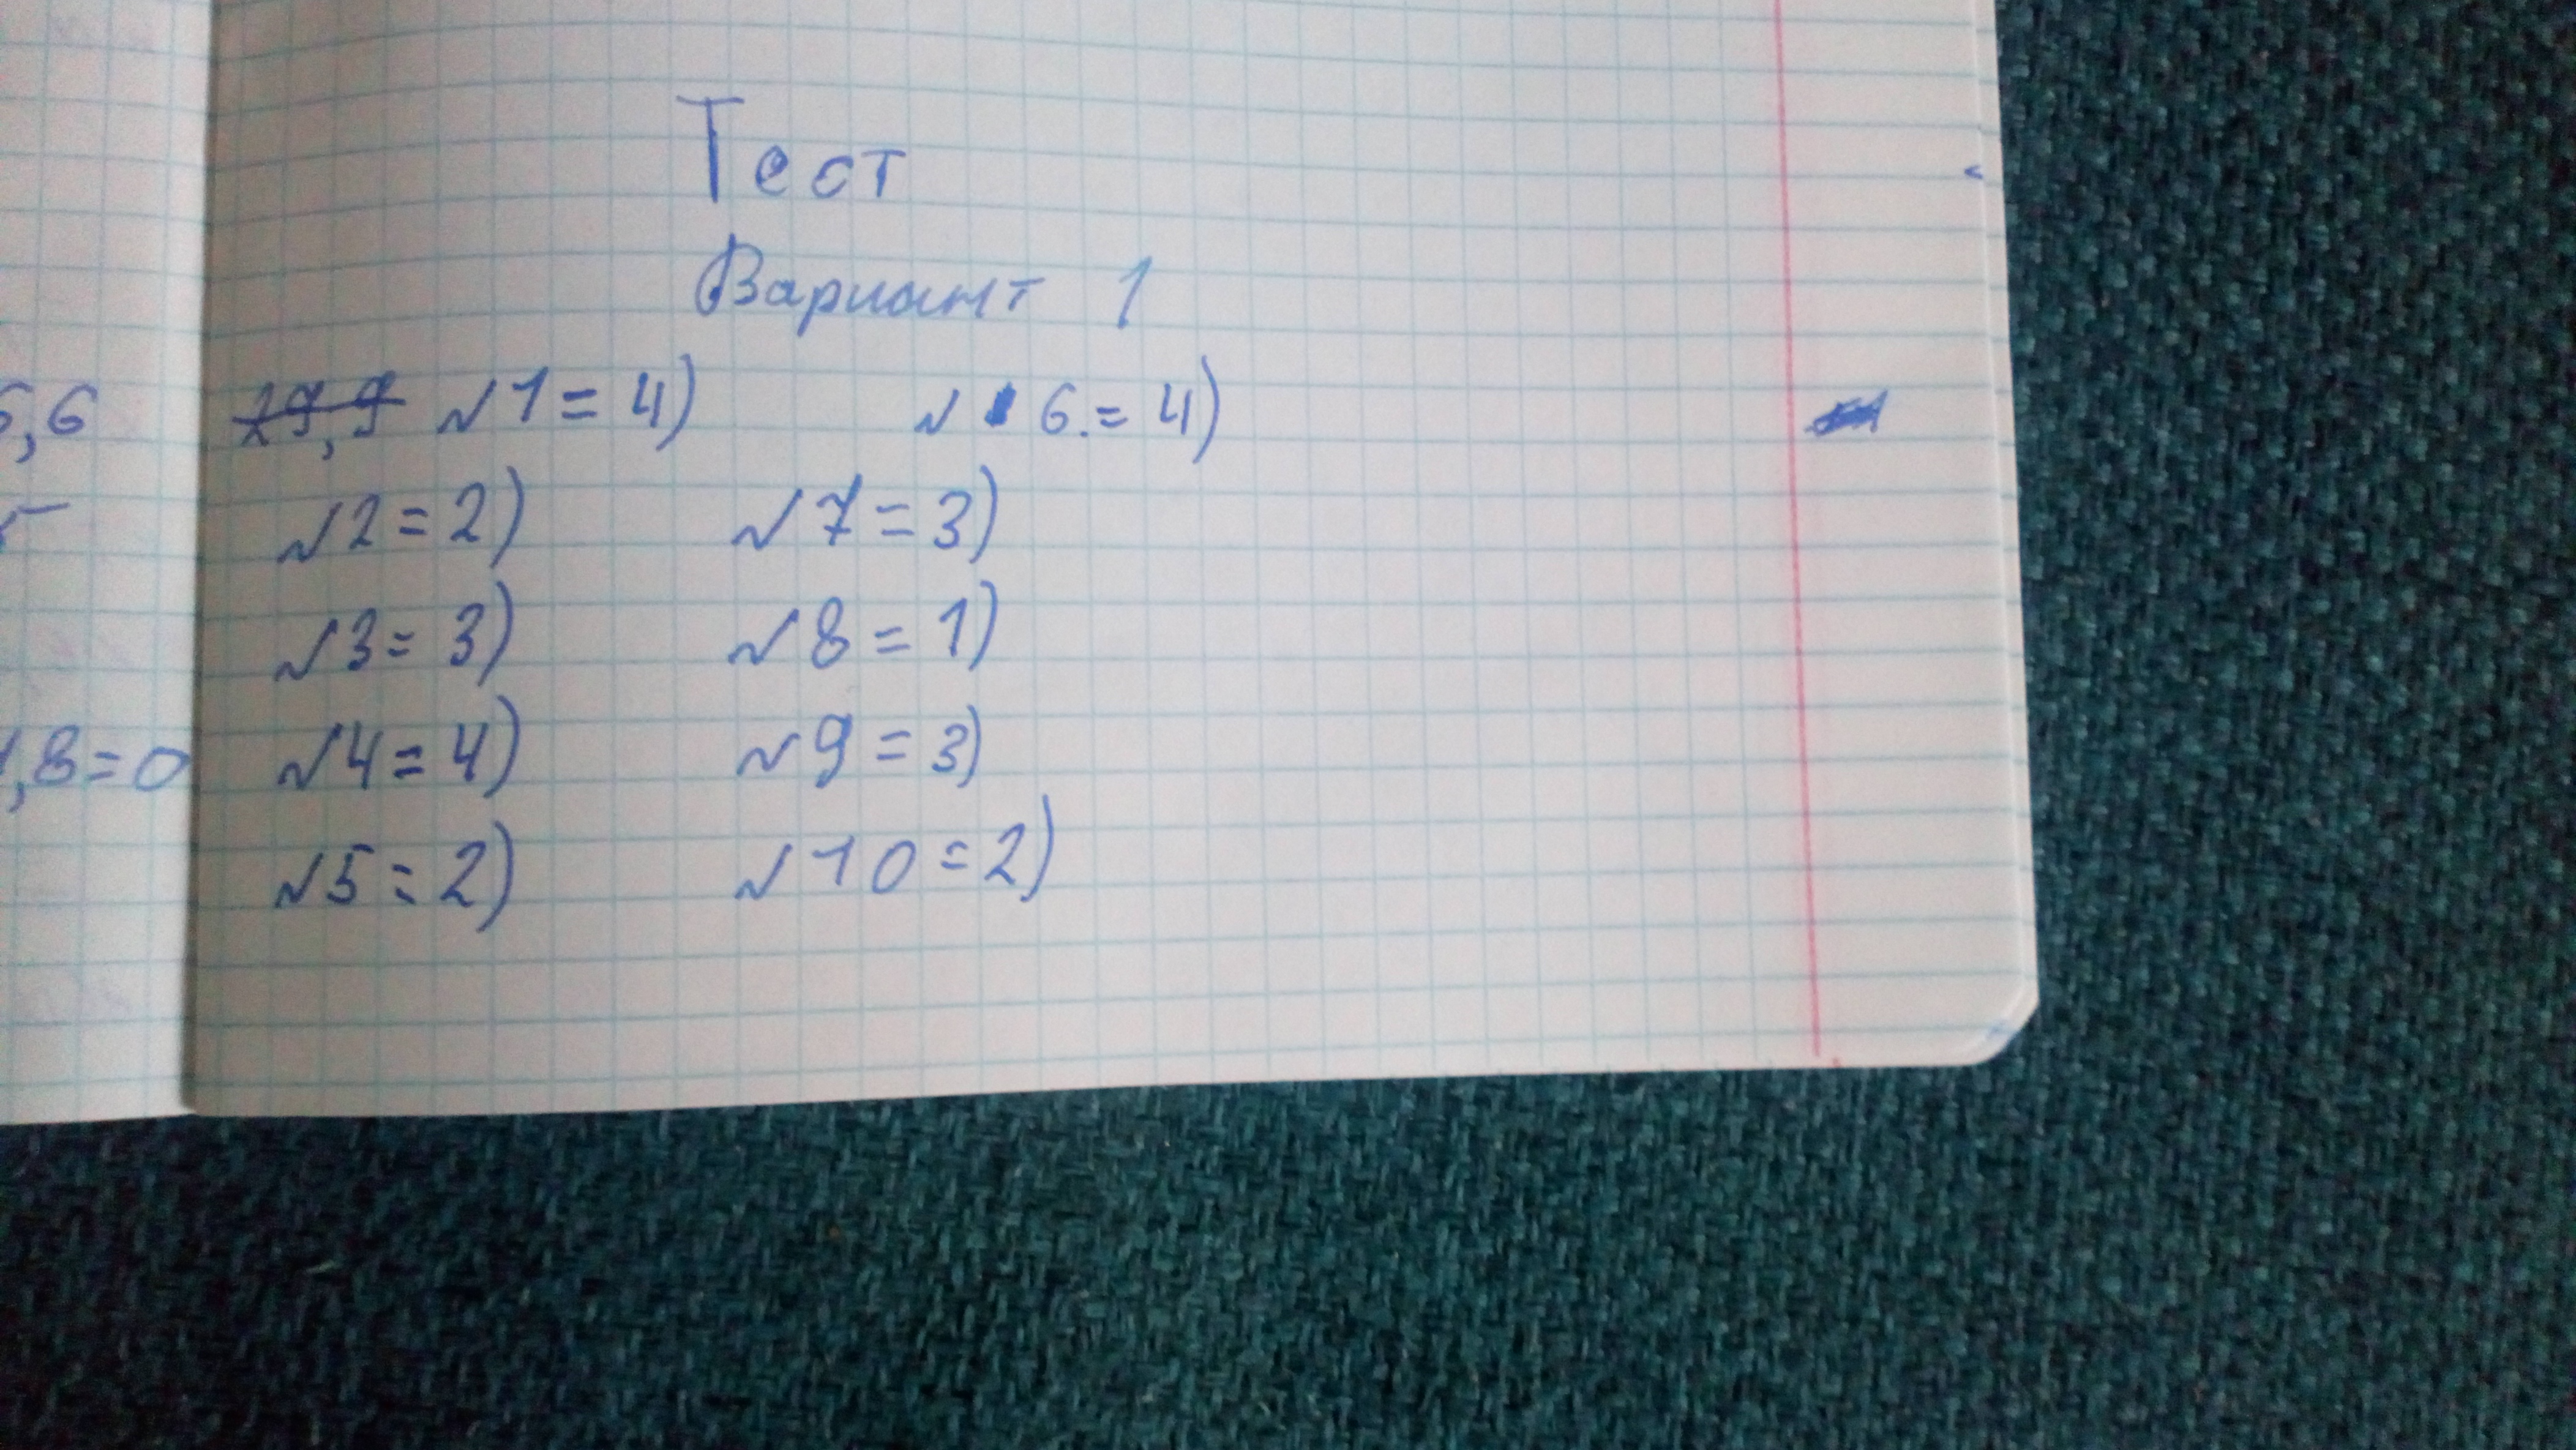 Тест
Вариант 1
5,6 29,9 №1=4) №6.=4)
№2=2) №7=3)
№3=3) №8=1)
,8=0 №4=4) №9=3)
№5=2) №10=2)